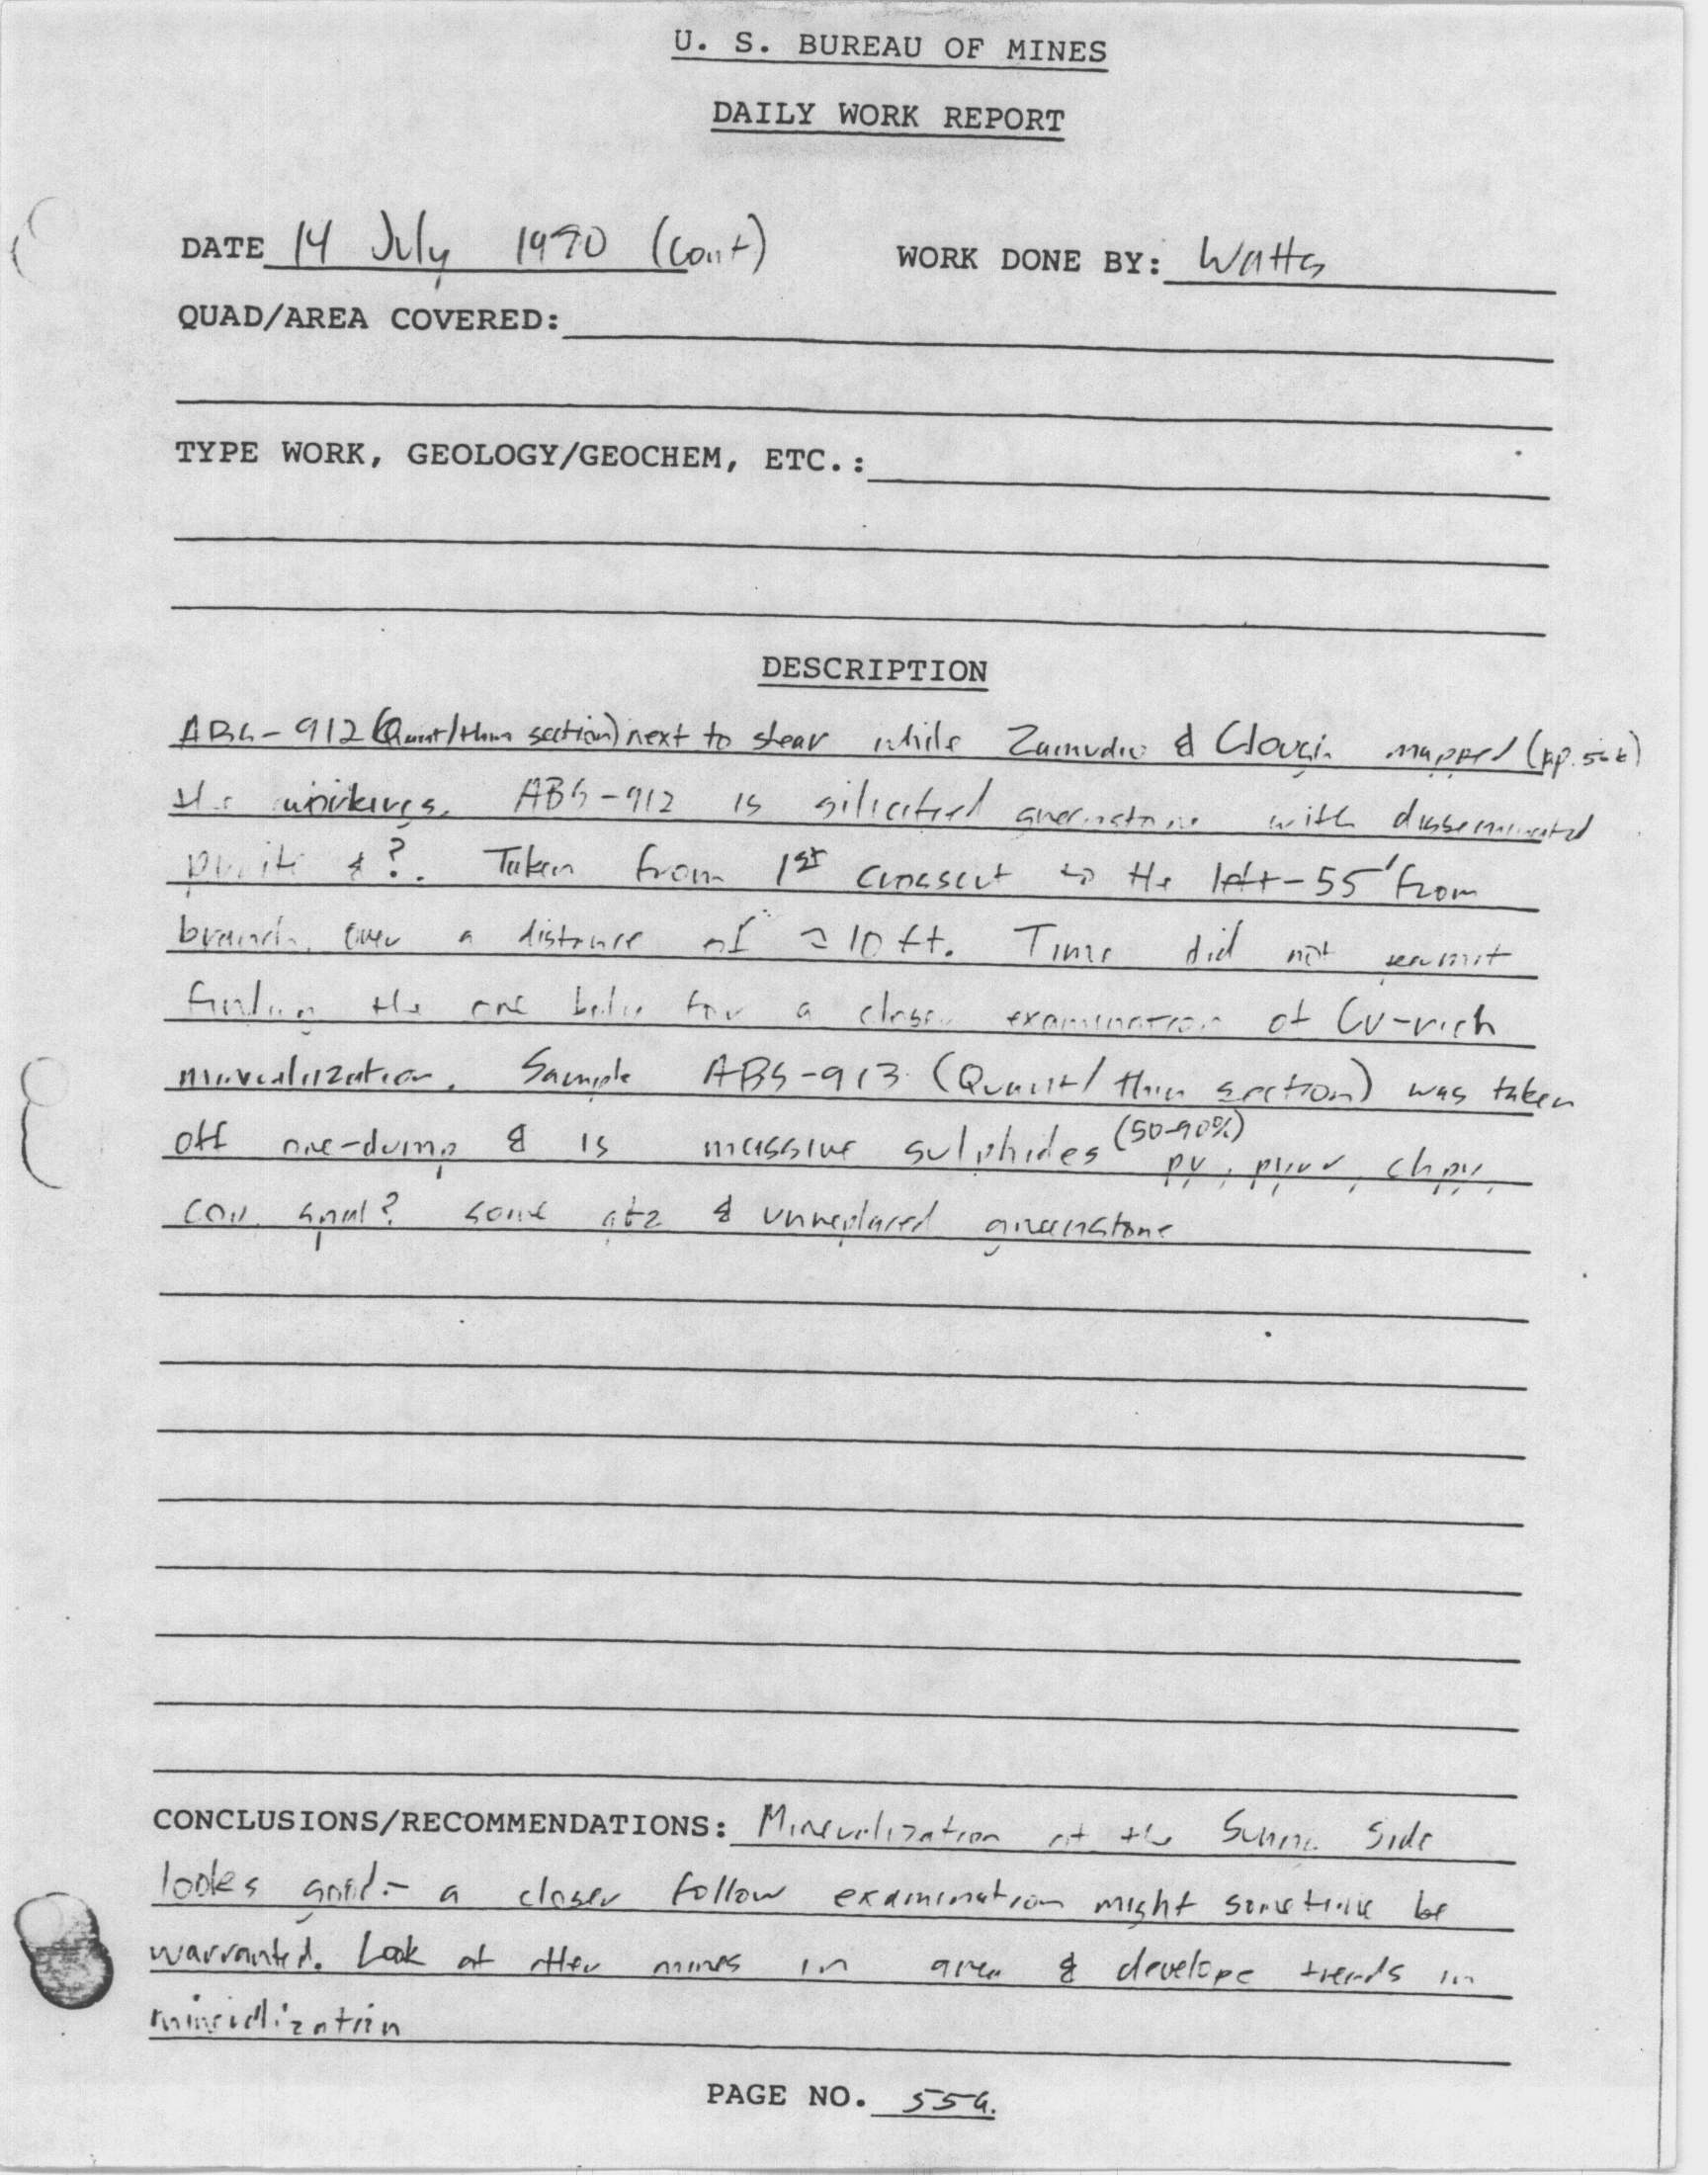 U. S. BUREAU OF MINES
DAILY WORK REPORT
DATE 14 July 1990 (cont) WORK DONE BY: Watts
QUAD/AREA COVERED:
TYPE WORK, GEOLOGY/GEOCHEM, ETC.:
DESCRIPTION
ABS-912 (Quant/thin section) next to shear while Zamudio & Clough mapped (pp. 56b)
the workings. ABS-912 is silicified greenstone with disseminated
pyrite & ?. Taken from 1st crosscut to the left - 55' from
branch, over a distance of ≈ 10 ft. Time did not permit
finding the ore body for a closer examination of Cu-rich
mineralization. Sample ABS-913 (Quant/thin section) was taken
off ore-dump & is massive sulphides (50-90%) py, pyrr, chpy,
cov, sphal? some qtz & unreplaced greenstone
CONCLUSIONS/RECOMMENDATIONS: Mineralization at the Sunny Side
looks good - a closer follow examination might sometime be
warranted. Look at other mines in area & develope trends in
mineralization
PAGE NO. 55a.